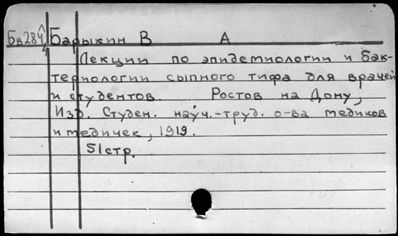 Бв284 Барыкин В А
Лекции по эпидемиологии и бак-
териологии сыпного тифа для врачей
и студентов. Ростов на Дону,
Изд. Студен. науч.-труд. о-ва медиков
и медичек, 1919.
51 стр.